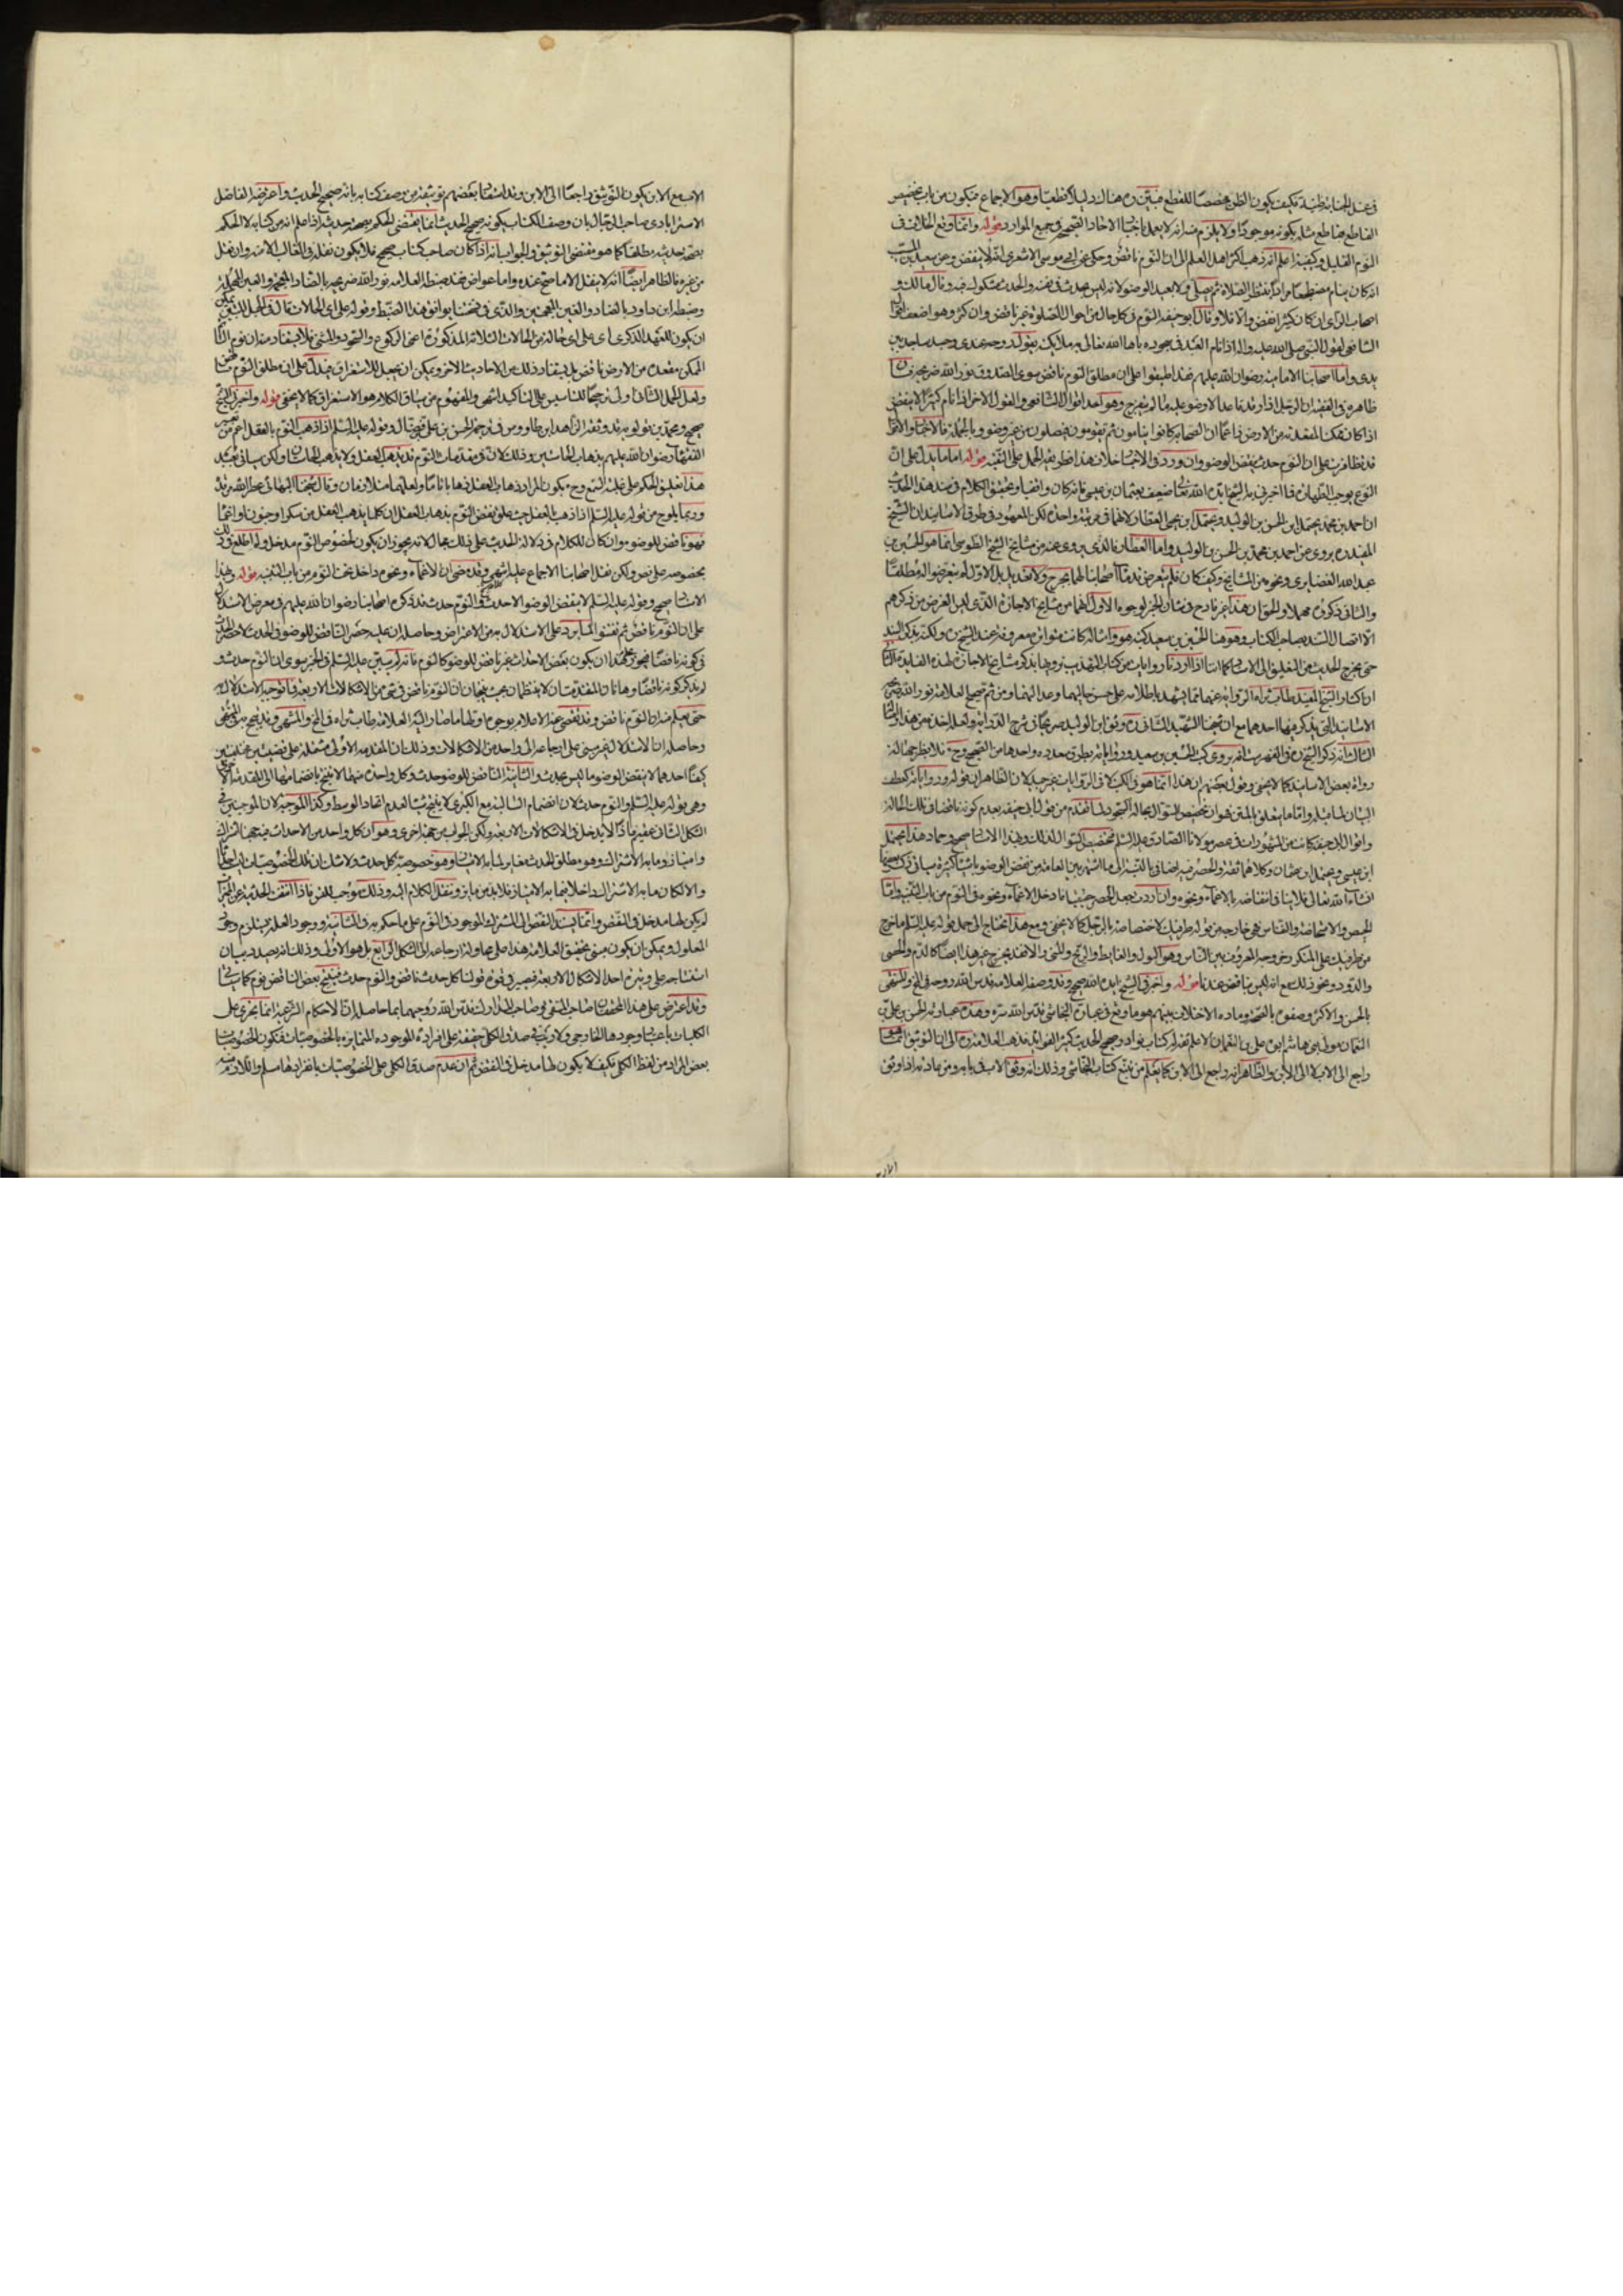 في غسل الجنابة ظنية فكيف يكون الظن مخصصا للقطع فبين ره هناك دليلا قطعيا وهو الاجماع فيكون من باب تخصيص
القاطع بقاطع مثله يكون موجودا ولا يلزم منه انه لا يعمل باخبار الاحاد الصحيحة في جميع الموارد قوله وانما وقع الخلاف في
النوم القليل وكيفية اعلم انه ذهب اكثر اهل العلم الى ان النوم ناقض وحكي عن ابي موسى الاشعري انه لا ينقض وعن سعيد بن المسيب
انه كان ينام مضطجعا مرارا ينتظر الصلاة ثم يصلي ولا يعيد الوضوء لانه ليس بحدث في نفسه والحدث مشكوك فيه وقال مالك و
اصحاب الرأي ان كان كثيرا نقض والا فلا وقال ابو حنيفة النوم في كل حال من احوال الصلوة غير ناقض وان كثر وهو اضعف اقوال
الشافعي لقول النبي صلى الله عليه واله اذا نام العبد في سجوده باهى الله تعالى به ملائكته يقول عبدي روحه عندي وجسده ساجد بين
يدي واما اصحابنا الامامية رضوان الله عليهم فقد اطبقوا على ان مطلق النوم ناقض سوى الصدوق نور الله ضريحه فان
ظاهره في الفقيه ان الرجل اذا رقد قاعدا لا وضوء عليه ما لم ينفرج وهو احد اقوال الشافعي والقول الاخر اذا نام كثيرا لا ينقض
اذا كان ممكن المقعدة من الارض زاعما ان الصحابة كانوا ينامون ثم يقومون فيصلون من غير وضوء وبالجملة فالاخبار والاقوال
قد تظافرت على ان النوم حدث ينقض الوضوء وان ورد في الاخبار خلاف هذا فطريقه الحمل على التقية قوله اما ما يدل على ان
النوم يوجب الطهارة فما اخبرني به الشيخ ايده الله تعالى ضعيف بعثمان بن عيسى فانه كان واقفيا وتحقيق الكلام في سند هذا الحديث
ان احمد بن محمد يحتمل ابن الحسن بن الوليد ويحتمل ابن يحيى العطار لانهما في مرتبة واحدة لكن المعهود في طرق الاسانيد ان الشيخ
المفيد ره يروي عن احمد بن محمد بن الحسن بن الوليد واما العطار فالذي يروي عنه من مشايخ الشيخ الطوسي انما هو الحسين بن
عبد الله الغضايري ونحوه من المشايخ وكيف كان فلم يتعرض قدماء اصحابنا لهما بجرح ولا تعديل بل الاول لم يتعرضوا له مطلقا
والثاني ذكروه مهملا والحق ان هذا غير قادح في شأن الخبر لوجوه الاول انهما من مشايخ الاجازة الذي ليس الغرض من ذكرهم
الا اتصال السند بصاحب الكتاب وهو هنا الحسين بن سعيد وكتبه هو وامثاله كانت متواترة معروفة عند الشيخ ره ولكنه يذكر السند
حتى يخرج الحديث من التعليق الى الاسناد كما اذا اردنا روايات من كتاب التهذيب نرويها بذكر مشايخ الاجازة لهذه الفايدة الثاني
ان اكثار الشيخ المفيد طاب ثراه الرواية عنهما مما يشهد باطلاعه على حسن حاليهما وعدالتهما ومن ثم صحح العلامة نور الله ضريحه
الاسانيد التي يذكر فيها احدهما مع ان شيخنا الشهيد الثاني ره وثق ابن الوليد صريحا في شرح الدراية ولعله اخذه من هذا المقام
الثالث انه ذكر الشيخ ره في الفهرست انه يروي كتب الحسين بن سعيد ورواياته بطرق متعددة واحدها من الصحيح وح فلا يضر جهالة
رواة بعض الاسانيد كما لا يخفى وقول بعضهم ان هذا انما هو في الكتب لا في الروايات غير جيد لان الظاهر ان قوله ورواياته كعطف
البيان لما قبله واما ما يتعلق بالمتن فهو ان تخصيص السؤال بحالة السجود لما تقدم من قول ابي حنيفة بعدم كونه ناقضا في تلك الحالة
واقوال ابي حنيفة كانت من المشهورات في عصر مولانا الصادق عليه السلم فتخصيص السؤال لذلك وبهذا الاسناد صحيح وحماد هذا يحتمل
ابن عيسى ويحتمل ابن عثمان وكلاهما ثقة والحصر فيه اضافي بالنسبة الى ما اشتهر بين العامة من نقض الوضوء باشياء كثيرة سيأتي ذكر بعضها
انشاء الله تعالى فلا ينافي انتقاضه بالاغماء ونحوه وان اردت جعل الحصر حقيقيا فادخل الاغماء ونحوه في النوم من باب التنبيه واما
الحيض والاستحاضة والنفاس فهي خارجة من قوله طرفيك لاختصاصه بالرجل كما لا يخفى ومع هذا تحتاج الى حمل قوله عليه السلم ما خرج
من طرفيك على المتكرر خروجه المعروف بين الناس وهو البول والغايط والريح والمني والا فقد يخرج غير هذا ايضا كالدم والحصى
والدود ونحو ذلك مع انه ليس بناقض عندنا قوله واخبرني الشيخ ايده الله صحيح وقد وصفه العلامة قدس الله روحه في المخ والمنتهى
بالحسن والاكثر وصفوه بالصحة ومادة الاختلاف بينهم هو ما وقع في عبارة النجاشي قدس الله سره وهذه عبارته الحسن بن علي بن
النعمان مولى بني هاشم ابوه علي بن النعمان الاعلم ثقة له كتاب نوادر صحيح الحديث كثير الفوايد فذهب العلامة ره الى ان التوثيق انما هو
راجع الى الاب لا الى الابن والظاهر انه راجع الى الابن كما يعلم من تتبع كتاب النجاشي وذلك انه وثق الاب في بابه ومن عادته اذا وثق
الاب مع الابن كون التوثيق راجعا الى الابن وقد استفاد بعضهم توثيقه من وصف كتابه بانه صحيح الحديث واعترضه الفاضل
الاسترابادي صاحب الرجال بان وصف الكتاب بكونه صحيح الحديث انما يقتضي الحكم بصحة حديثه اذا علم انه من كتابه لا الحكم
بصحة حديثه مطلقا كما هو مقتضى التوثيق والجواب انه اذا كان صاحب كتاب صحيح فلا يكون نقله في الغالب الا منه وان نقل
من غيره فالظاهر ايضا انه لا ينقل الا ما صح عنده واما عواض فقد ضبطه العلامة نور الله ضريحه بالضاد المعجمة والعين المهملة
وضبطه ابن داود بالضاد والغين المعجمتين والذي في نسختنا يوافق هذا الضبط وقوله على اي الحالات قال في الحبل المتين يمكن
ان يكون للعهد الذكري اي على اي حالة من الحالات الثلاثة المذكورة اعني الركوع والسجود والمشي فلا يستفاد منه ان نوم
الممكن مقعده من الارض ناقض بل يستفاد ذلك من الاحاديث الاخر ويمكن ان يجعل للاستغراق فيدل على ان مطلق النوم ناقض
ولعل الحمل الثاني اولى ترجيحا للتأسيس على التأكيد انتهى والمفهوم من سياق الكلام هو الاستغراق كما لا يخفى قوله واخبرني الشيخ
صحيح ومحمد بن قولويه قد وثقه السيد ابن طاووس في ترجمة الحسن بن علي بن فضال وقوله عليه السلم اذا ذهب النوم بالعقل اعم من تعبير
الفقهاء رضوان الله عليهم بذهاب الحاستين وذلك لان في مقدمات النوم قد يذهب العقل ولا يذهب الحاستان ولكن سيأتي
هذا تعليق الحكم على غلبة السمع وح يكون المراد ذهاب العقل ذهابا تاما ولعلهما متلازمان وقال شيخنا البهائي عطر الله مرقده
وربما يلوح من قوله عليه السلم اذا ذهب العقل حيث علق نقض النوم بذهاب العقل ان كلما يذهب العقل من سكر او جنون او اغماء
فهو ناقض للوضوء وان كان للكلام في دلالة الحديث على ذلك مجال لانه يجوز ان يكون لخصوص النوم مدخل ولم اطلع في ذلك
بخصوصه على نص ولكن نقل اصحابنا الاجماع عليه انتهى وقد مضى ان الاغماء ونحوه داخل تحت النوم من باب التنبيه قوله وبهذا
الاسناد صحيح وقوله عليه السلم لا ينقض الوضوء الا حدث والنوم حدث قد ذكره اصحابنا رضوان الله عليهم في معرض الاستدلال
على ان النوم ناقض ثم تفننوا لما يرد على الاستدلال به من الاعتراض وحاصله ان عليه حصر الناقض للوضوء في الحدث لا حصر الحدث
في كونه ناقضا فيجوز ان يكون بعض الاحداث غير ناقض للوضوء كالنوم فانه لم يبين عليه السلم في الخبر سوى ان النوم حدث و
لم يذكر كونه ناقضا وهاتان المقدمتان لا ينتظمان بحيث ينتجان ان النوم ناقض في شيء من الاشكال الاربعة فما توجيه الاستدلال به
حتى يعلم منه ان النوم ناقض وقد تفصى عنه الاعلام بوجوه اولها ما صار اليه العلامة طاب ثراه في المخ والمنتهى
وحاصله ان الاستدلال غير مبني على ارجاعه الى واحد من الاشكال وذلك ان المقدمة الاولى مشتملة على قضيتين مختلفتين
كيفا احدهما لا ينقض الوضوء ما ليس بحدث والثانية الناقض للوضوء حدث وكل واحدة منهما لا ينتج بانضمامها الى المقدمة الاخرى
وهي قوله عليه السلم والنوم حدث لان انضمام السالبة مع الكبرى لا ينتج شيئا لعدم اتحاد الوسط وكذا الموجبة لان الموجبتين في
الشكل الثاني عقيم فاذا لا يدخل في الاشكال الاربعة ولكن الجواب من جهة اخرى وهو ان كل واحد من الاحداث فيه جهة اشتراك
وامتياز وما به الاشتراك وهو مطلق الحدث مغاير لما به الامتياز وهو خصوصية كل حدث ولا شك ان تلك الخصوصيات ليست احداثا
والا لكان ما به الاشتراك داخلا فيما به الامتياز فلا بد من مايز وننقل الكلام اليه وذلك موجب للتس فاذا انتفت الحدثية عن المميزات
لم يكن لها مدخل في النقض وانما يستند النقض الى المشترك الموجود في النوم على ما حكم به في الثانية ووجود العلة يستلزم وجود
المعلول ويمكن ان يكون مبنى تحقيق العلامة هذا على محاولة ارجاعه الى الشكل الرابع بل هو الاولى وذلك انه بصدد بيان
استنتاجه على وتيرة احد الاشكال الاربعة فيصير في قوة قولنا كل حدث ناقض والنوم حدث فينتج بعض الناقض نوم كما سيأتي
وقد اعترض على هذا التحقيق صاحب المنتقى وصاحب المدارك قدس الله روحيهما بما حاصله ان الاحكام الشرعية انما تجري على
الكليات باعتبار وجودها الخارجي ولا ريب في صدق الكلي حقيقة على افراده الموجودة المتمايزة بالخصوصيات فتكون الخصوصيات
بعض المراد من لفظ الكلي فكيف لا يكون لها مدخل في النقض ثم ان عدم صدق الكلي على الخصوصيات بانفرادها مسلم واللازم منه